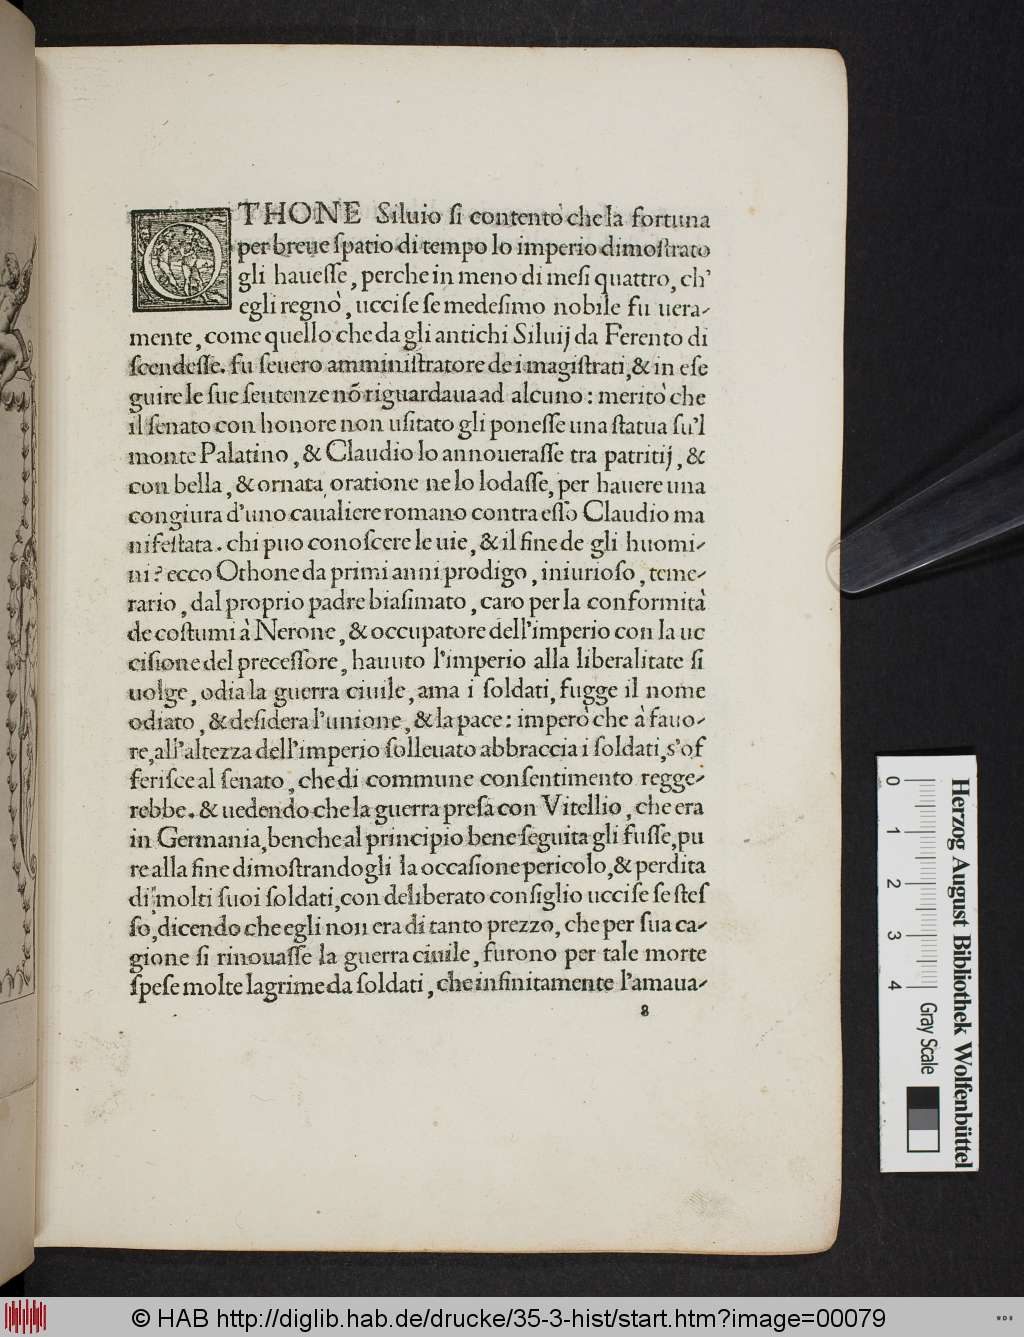 OTHONE Siluio si contentò che la fortuna
per breue spatio di tempo lo imperio dimostrato
gli hauesse, perche in meno di mesi quattro, ch'
egli regnò, uccise se medesimo nobile fu uera-
mente, come quello che da gli antichi Siluij da Ferento di
scendesse. fu seuero amministratore de i magistrati, & in ese
guire le sue sentenze nõ riguardaua ad alcuno: meritò che
il senato con honore non usitato gli ponesse una statua su'l
monte Palatino, & Claudio lo annouerasse tra patritij, &
con bella, & ornata oratione ne lo lodasse, per hauere una
congiura d'uno caualiere romano contra esso Claudio ma
nifestata. chi puo conoscere le uie, & il fine de gli huomi-
ni? ecco Othone da primi anni prodigo, iniurioso, teme-
rario, dal proprio padre biasimato, caro per la conformità
de costumi à Nerone, & occupatore dell'imperio con la uc
cisione del precessore, hauuto l'imperio alla liberalitate si
uolge, odia la guerra ciuile, ama i soldati, fugge il nome
odiato, & desidera l'unione, & la pace: imperò che à fauo-
re, all'altezza dell'imperio solleuato abbraccia i soldati, s'of
ferisce al senato, che di commune consentimento regge-
rebbe. & uedendo che la guerra presa con Vitellio, che era
in Germania, benche al principio bene seguita gli fusse, pu
re alla fine dimostrandogli la occasione pericolo, & perdita
di molti suoi soldati, con deliberato consiglio uccise se stes
so, dicendo che egli non era di tanto prezzo, che per sua ca-
gione si rinouasse la guerra ciuile, furono per tale morte
spese molte lagrime da soldati, che infinitamente l'amaua-
8
0 1 2 3 4 Gray Scale
Herzog August Bibliothek Wolfenbüttel
© HAB http://diglib.hab.de/drucke/35-3-hist/start.htm?image=00079